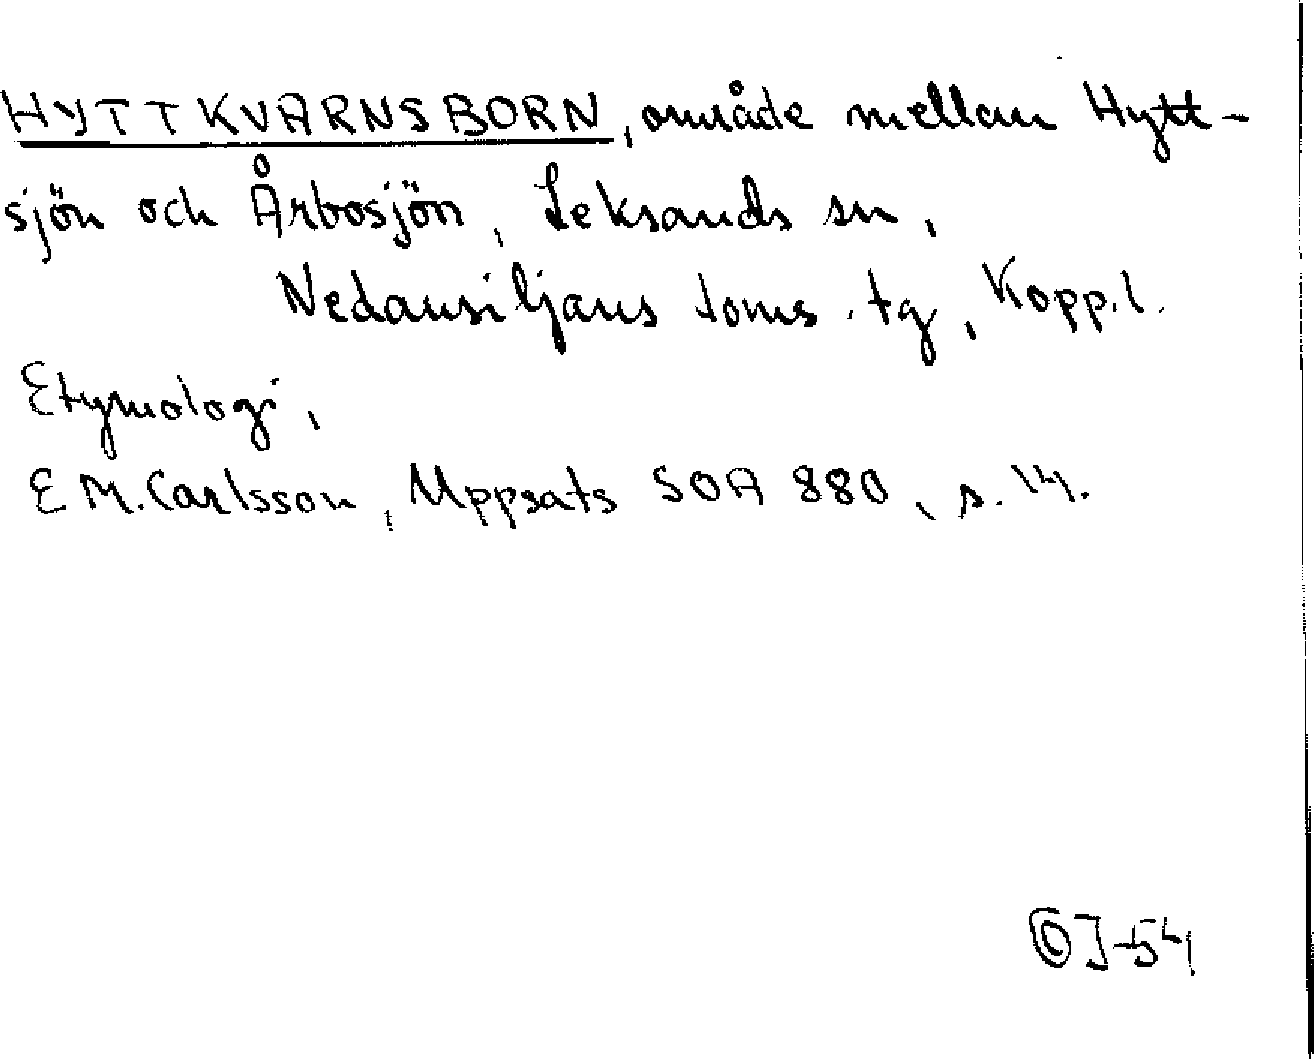 HYTTKVARNSBORN, område mellan Hytt-
sjön och Årbosjön, Leksands sn,
Nedansiljans doms. tg, Kopp.l.
Etymologi,
E M. Carlsson, Uppsats SOA 880, s. 14.
J-54